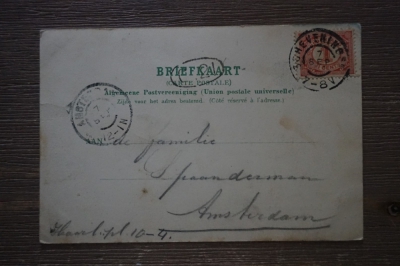 BRIEFKAART
(CARTE POSTALE)
Algemeene Postvereeniging (Union postale universelle)
Zijde voor het adres bestemd. (Côté réservé à l'adresse.)
SCHEVENINGEN
7
7-8V
7
12-1N
de familie
Spaanderman
Amsterdam
10-4